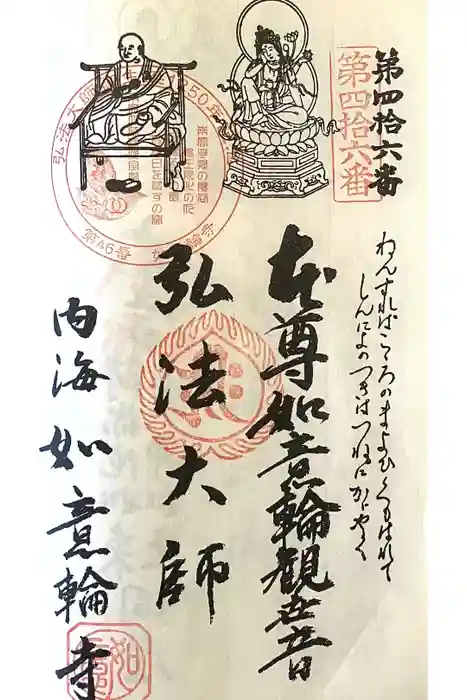 第四拾六番
第四拾六番
ねんすればこころのまよひくもはれて
しんによのつきはつねにかゞやく
本尊如意輪観世音
弘法大師
内海如意輪寺
弘法大師
50年
第46番